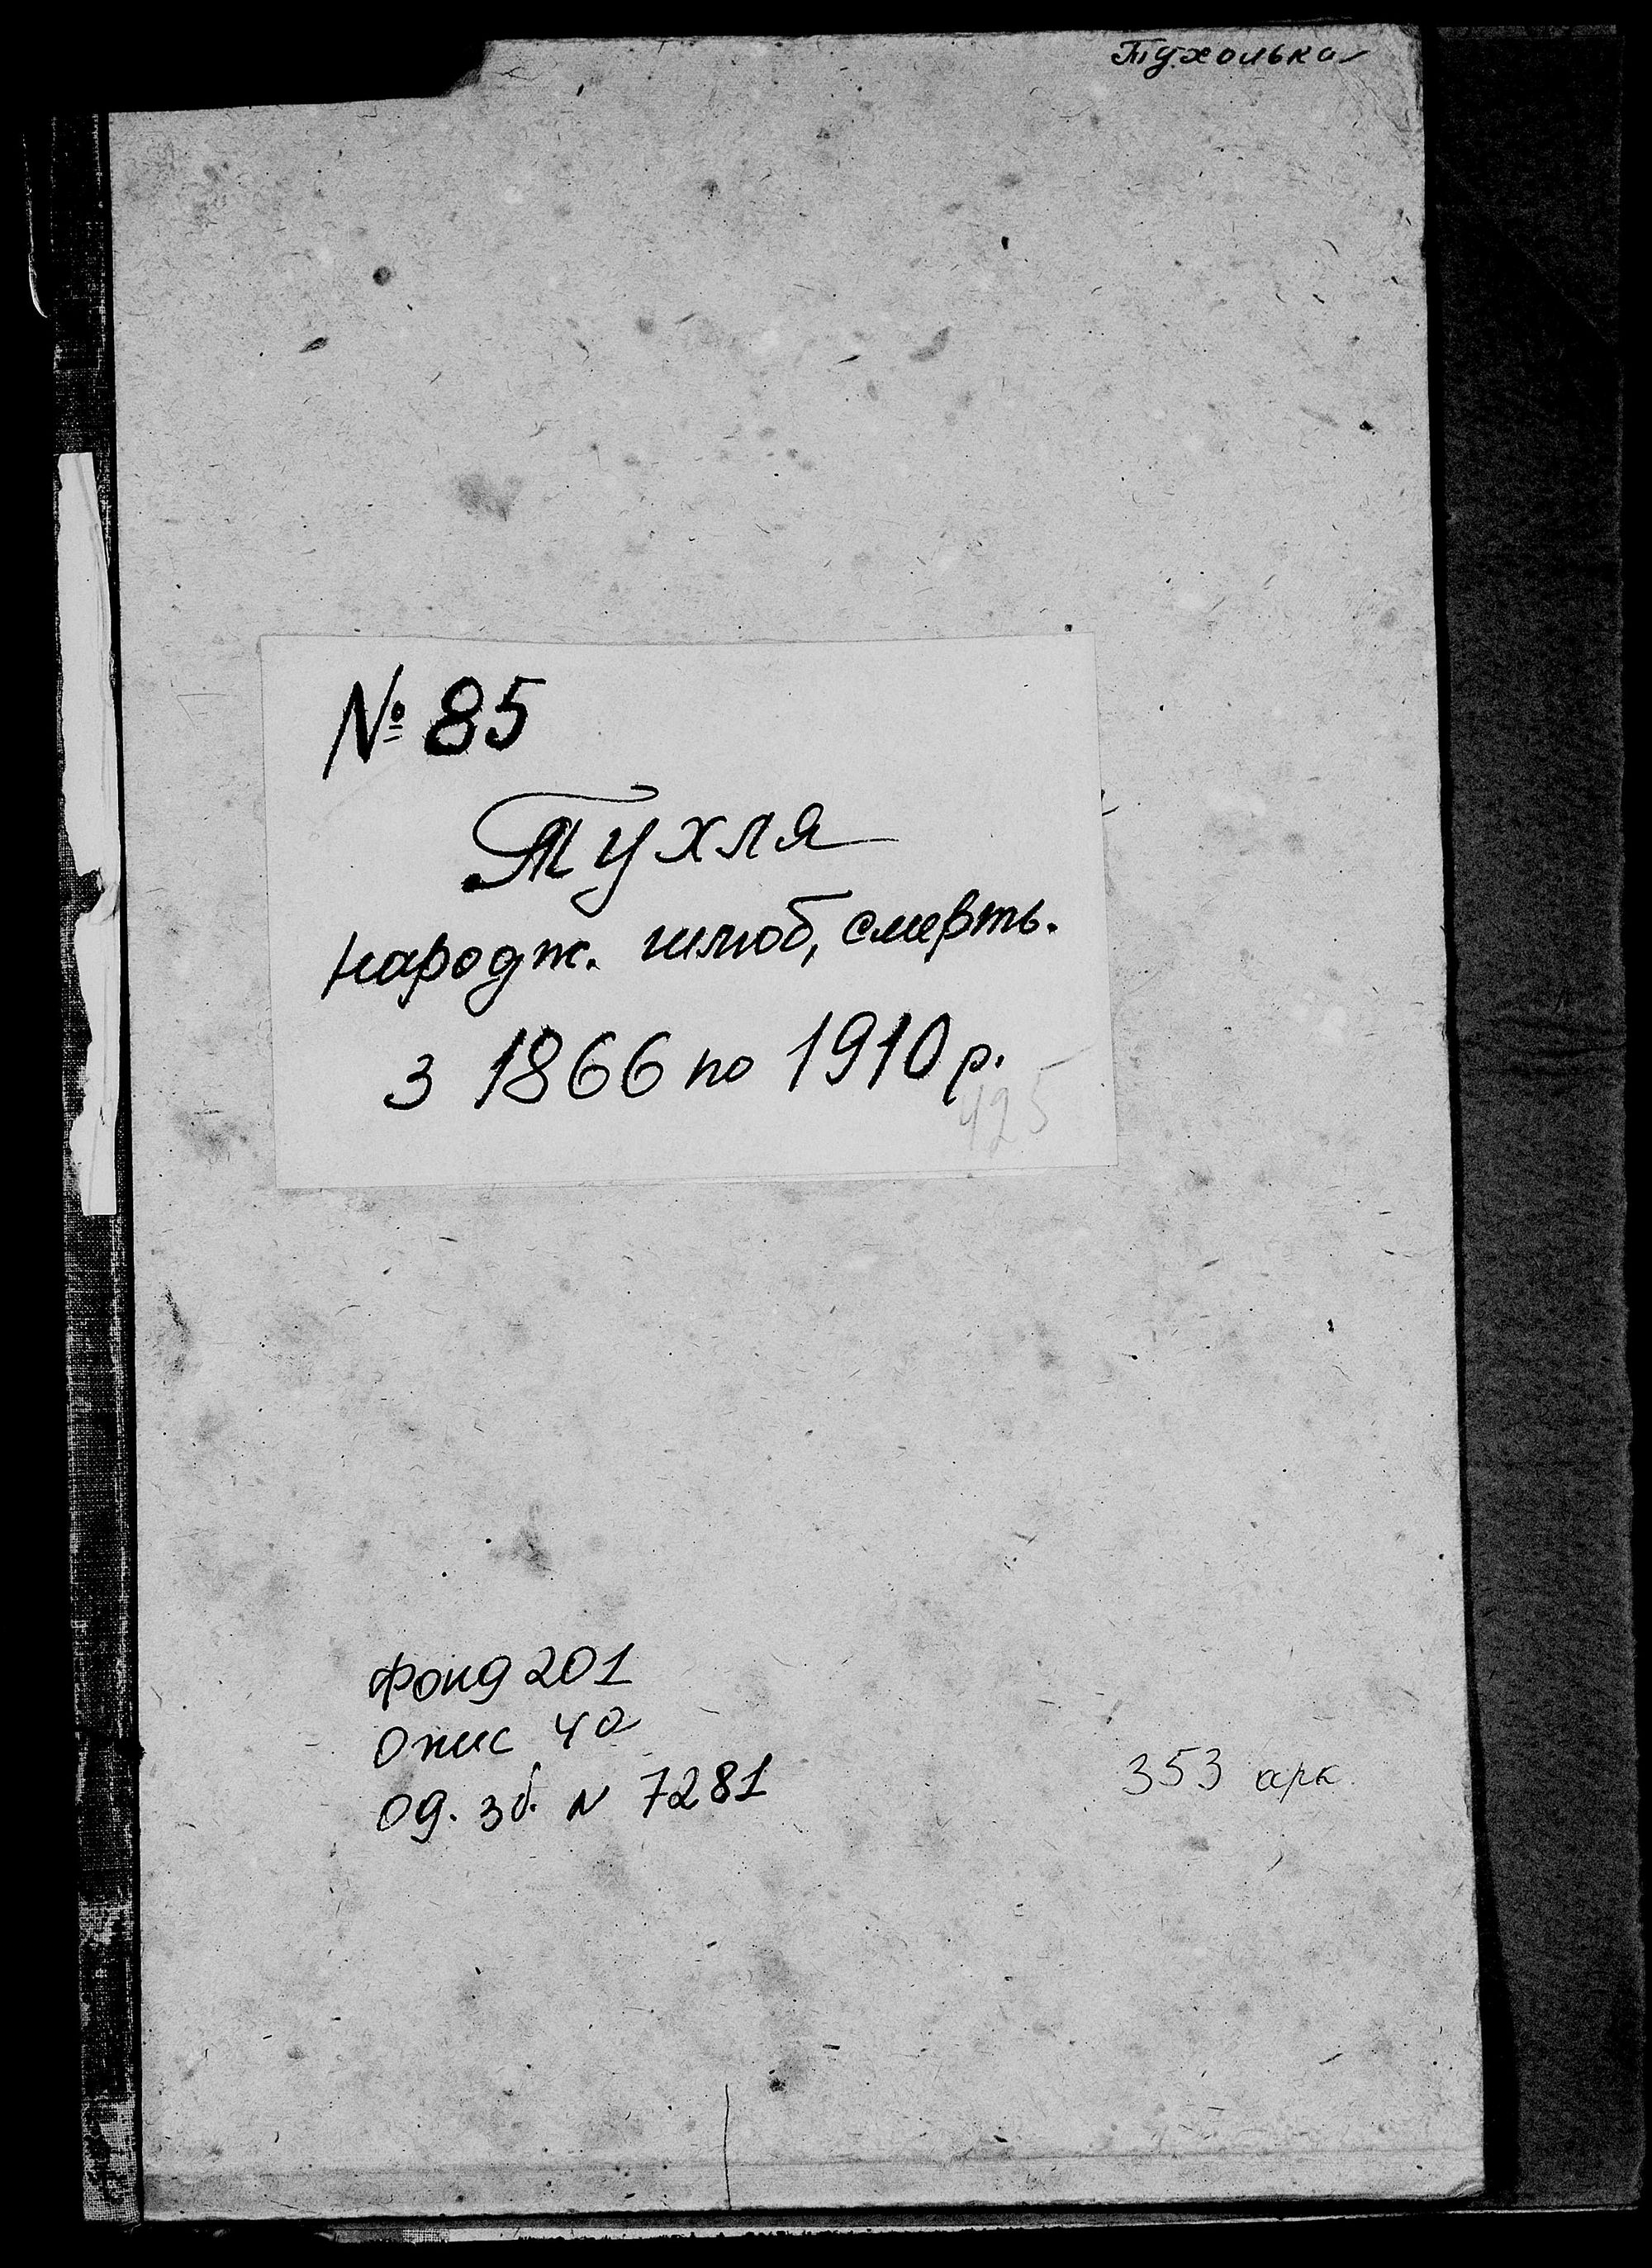 Тухолька
№ 85
Тухля
народж. шлюб, смерть.
з 1866 по 1910 р.
425
Фонд 201
Опис 4а
Од. зб. N 7281
353 арк.